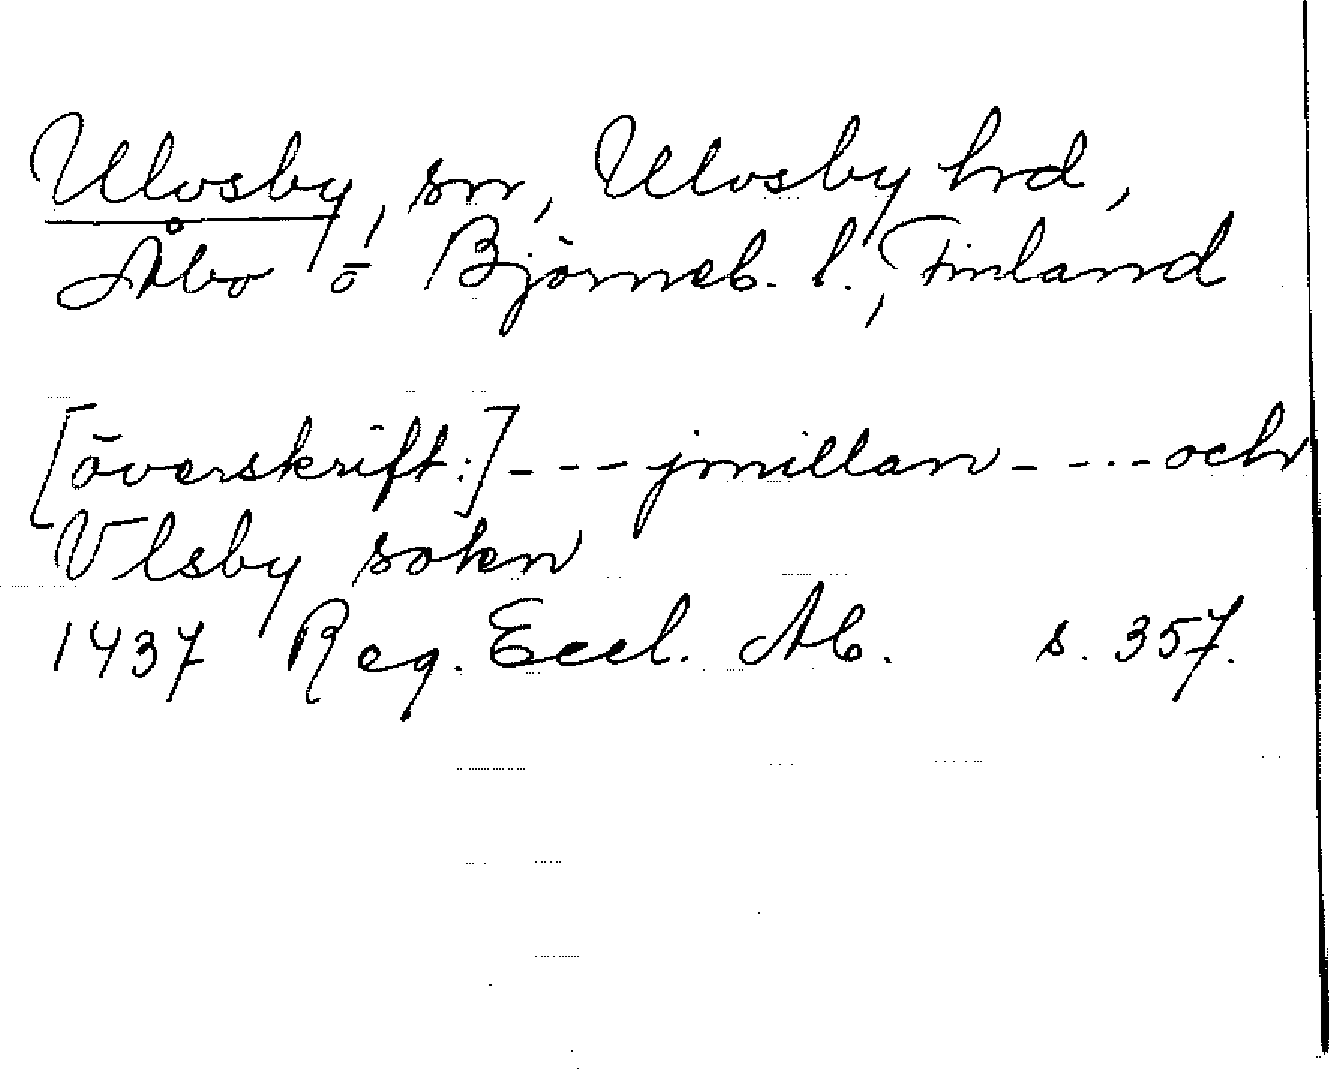 Ulvsby, sn, Ulvsby hrd,
Åbo o Björneb. l., Finland
[överskrift:] - - - jmillan - - - - och
Vlsby sokn
1437 Reg. Eccl. Ab. s. 357.